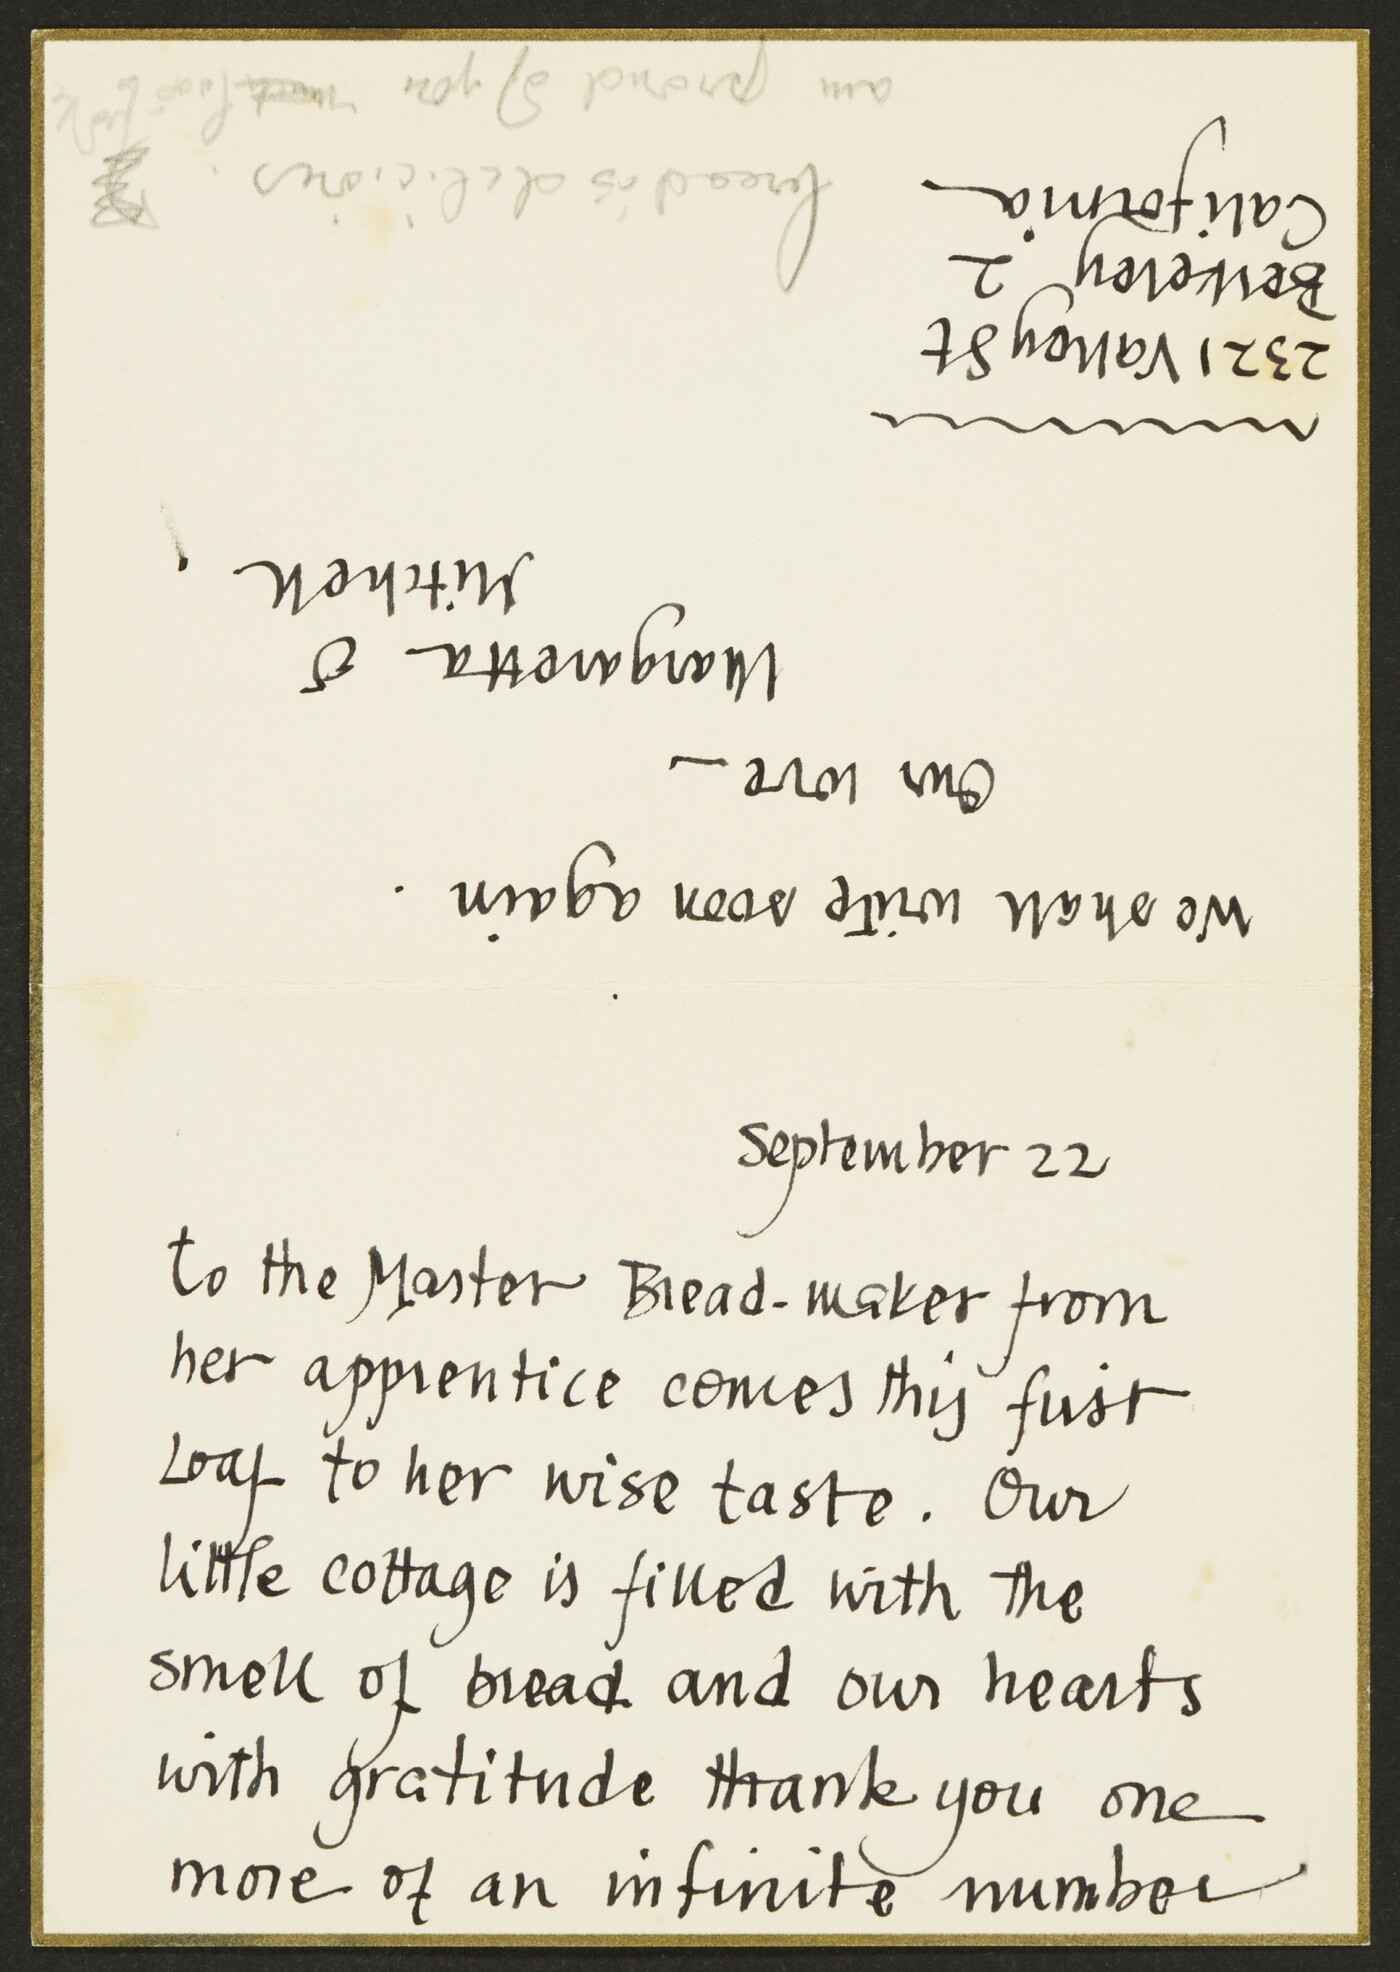 September 22
to the Master Bread-maker from
her apprentice comes this first
Loaf to her wise taste. Our
little cottage is filled with the
smell of bread and our hearts
with gratitude thank you one
more of an infinite number
We shall write soon again.
Our love –
Margaretta &
Mitchell.
2321 Valley St
Berkeley 2
California
bread is delicious.
am proud of you